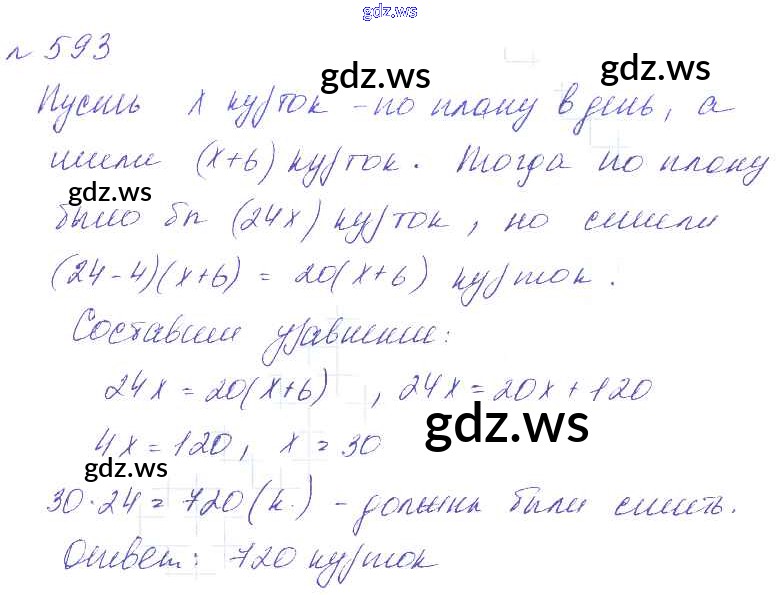 gdz.ws
№ 593
gdz.ws gdz.ws
Пусть x курток - по плану в день, а
шили (x+6) курток. Тогда по плану
gdz.ws
было бы (24x) курток, но сшили
(24-4)(x+6) = 20(x+6) курток.
Составим уравнение:
24x = 20(x+6), 24x = 20x + 120
gdz.ws
4x = 120, x = 30
gdz.ws
30·24 = 720 (к.) - должны были сшить.
Ответ: 720 курток